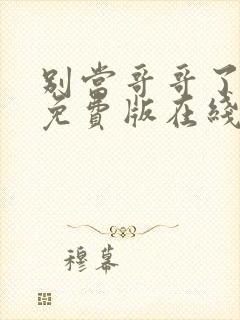 别当哥哥了
免費版在綫
穆幕